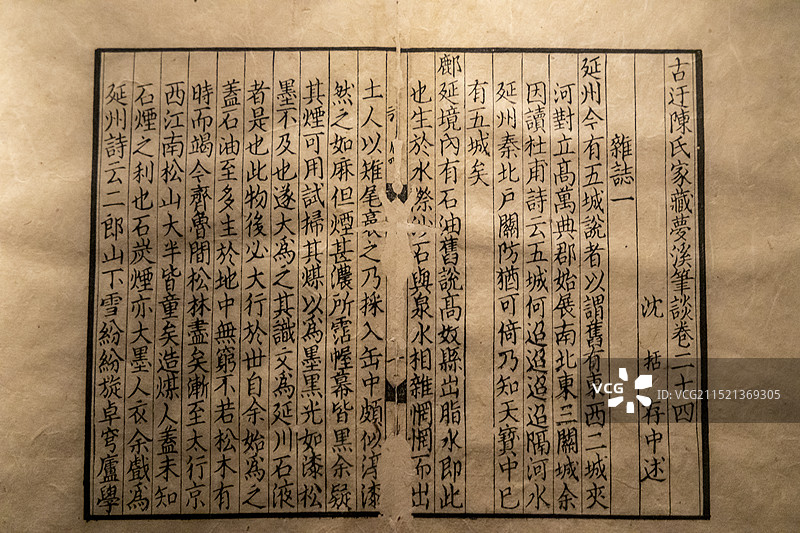 古迂陳氏家藏夢溪筆談卷二十四
沈 括 存中述
雜誌一
延州今有五城說者以謂舊有東西二城夾
河對立高萬典郡始展南北東三關城余
因讀杜甫詩云五城何迢迢迢迢隔河水
延州秦北戶關防猶可倚乃知天寶中已
有五城矣
鄜延境內有石油舊說高奴縣出脂水即此
也生於水際沙石與泉水相雜惘惘而出
土人以雉尾裛之乃採入缶中頗似淳漆
然之如麻但煙甚濃所霑幄幕皆黑余疑
其煙可用試掃其煤以為墨黑光如漆松
墨不及也遂大為之其識文為延川石液
者是也此物後必大行於世自余始為之
蓋石油至多生於地中無窮不若松木有
時而竭今齊魯間松林盡矣漸至太行京
西江南松山大半皆童矣造煤人蓋未知
石煙之利也石炭煙亦大墨人衣余戲為
延州詩云二郎山下雪紛紛旋卓穹廬學
VCG
ID:VCG211521369305